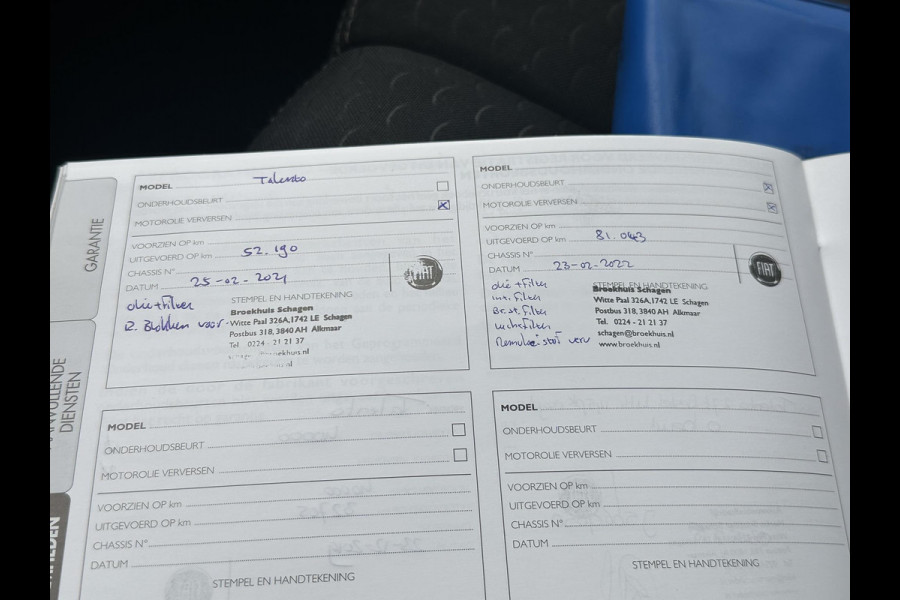 GARANTIE
DIENSTEN
MODEL Talento
ONDERHOUDSBEURT
MOTOROLIE VERVERSEN
VOORZIEN OP km
UITGEVOERD OP km 52.190
CHASSIS N°
DATUM 25-02-2021
FIAT
olie + filter
STEMPEL EN HANDTEKENING
R. Blokken voor
Broekhuis Schagen
Witte Paal 326A, 1742 LE Schagen
Postbus 318, 3840 AH Alkmaar
Tel. 0224 - 21 21 37
MODEL
ONDERHOUDSBEURT
MOTOROLIE VERVERSEN
VOORZIEN OP km
UITGEVOERD OP km 81.043
CHASSIS N°
DATUM 23-02-2022
FIAT
olie + filter
int. filter
Br.st. filter
luchtfilter
Remvloeistof verv
STEMPEL EN HANDTEKENING
Broekhuis Schagen
Witte Paal 326A, 1742 LE Schagen
Postbus 318, 3840 AH Alkmaar
Tel. 0224 - 21 21 37
schagen@broekhuis.nl
www.broekhuis.nl
MODEL
ONDERHOUDSBEURT
MOTOROLIE VERVERSEN
VOORZIEN OP km
UITGEVOERD OP km
CHASSIS N°
DATUM
STEMPEL EN HANDTEKENING
MODEL
ONDERHOUDSBEURT
MOTOROLIE VERVERSEN
VOORZIEN OP km
UITGEVOERD OP km
CHASSIS N°
DATUM
STEMPEL EN HANDTEKENING